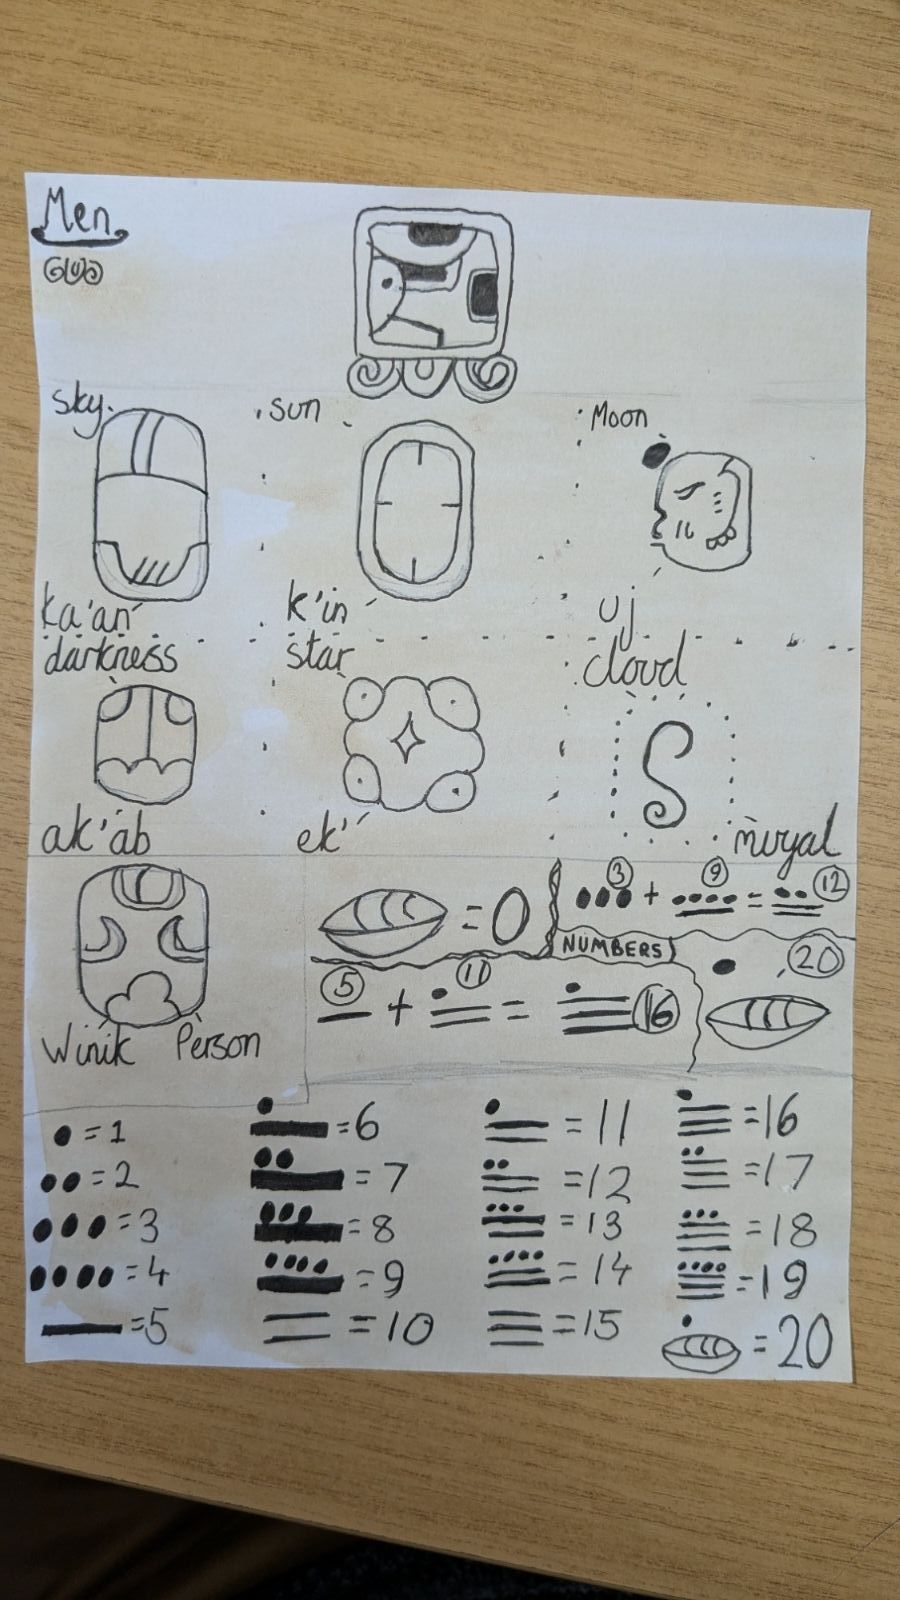 Men
sky. sun Moon
ka'an k'in uj
darkness star cloud
ak'ab ek' muyal
Winik Person
= 0
3 + 9 = 12
NUMBERS
5 + 11 = 16
20
= 1
= 2
= 3
= 4
= 5
= 6
= 7
= 8
= 9
= 10
= 11
= 12
= 13
= 14
= 15
= 16
= 17
= 18
= 19
= 20